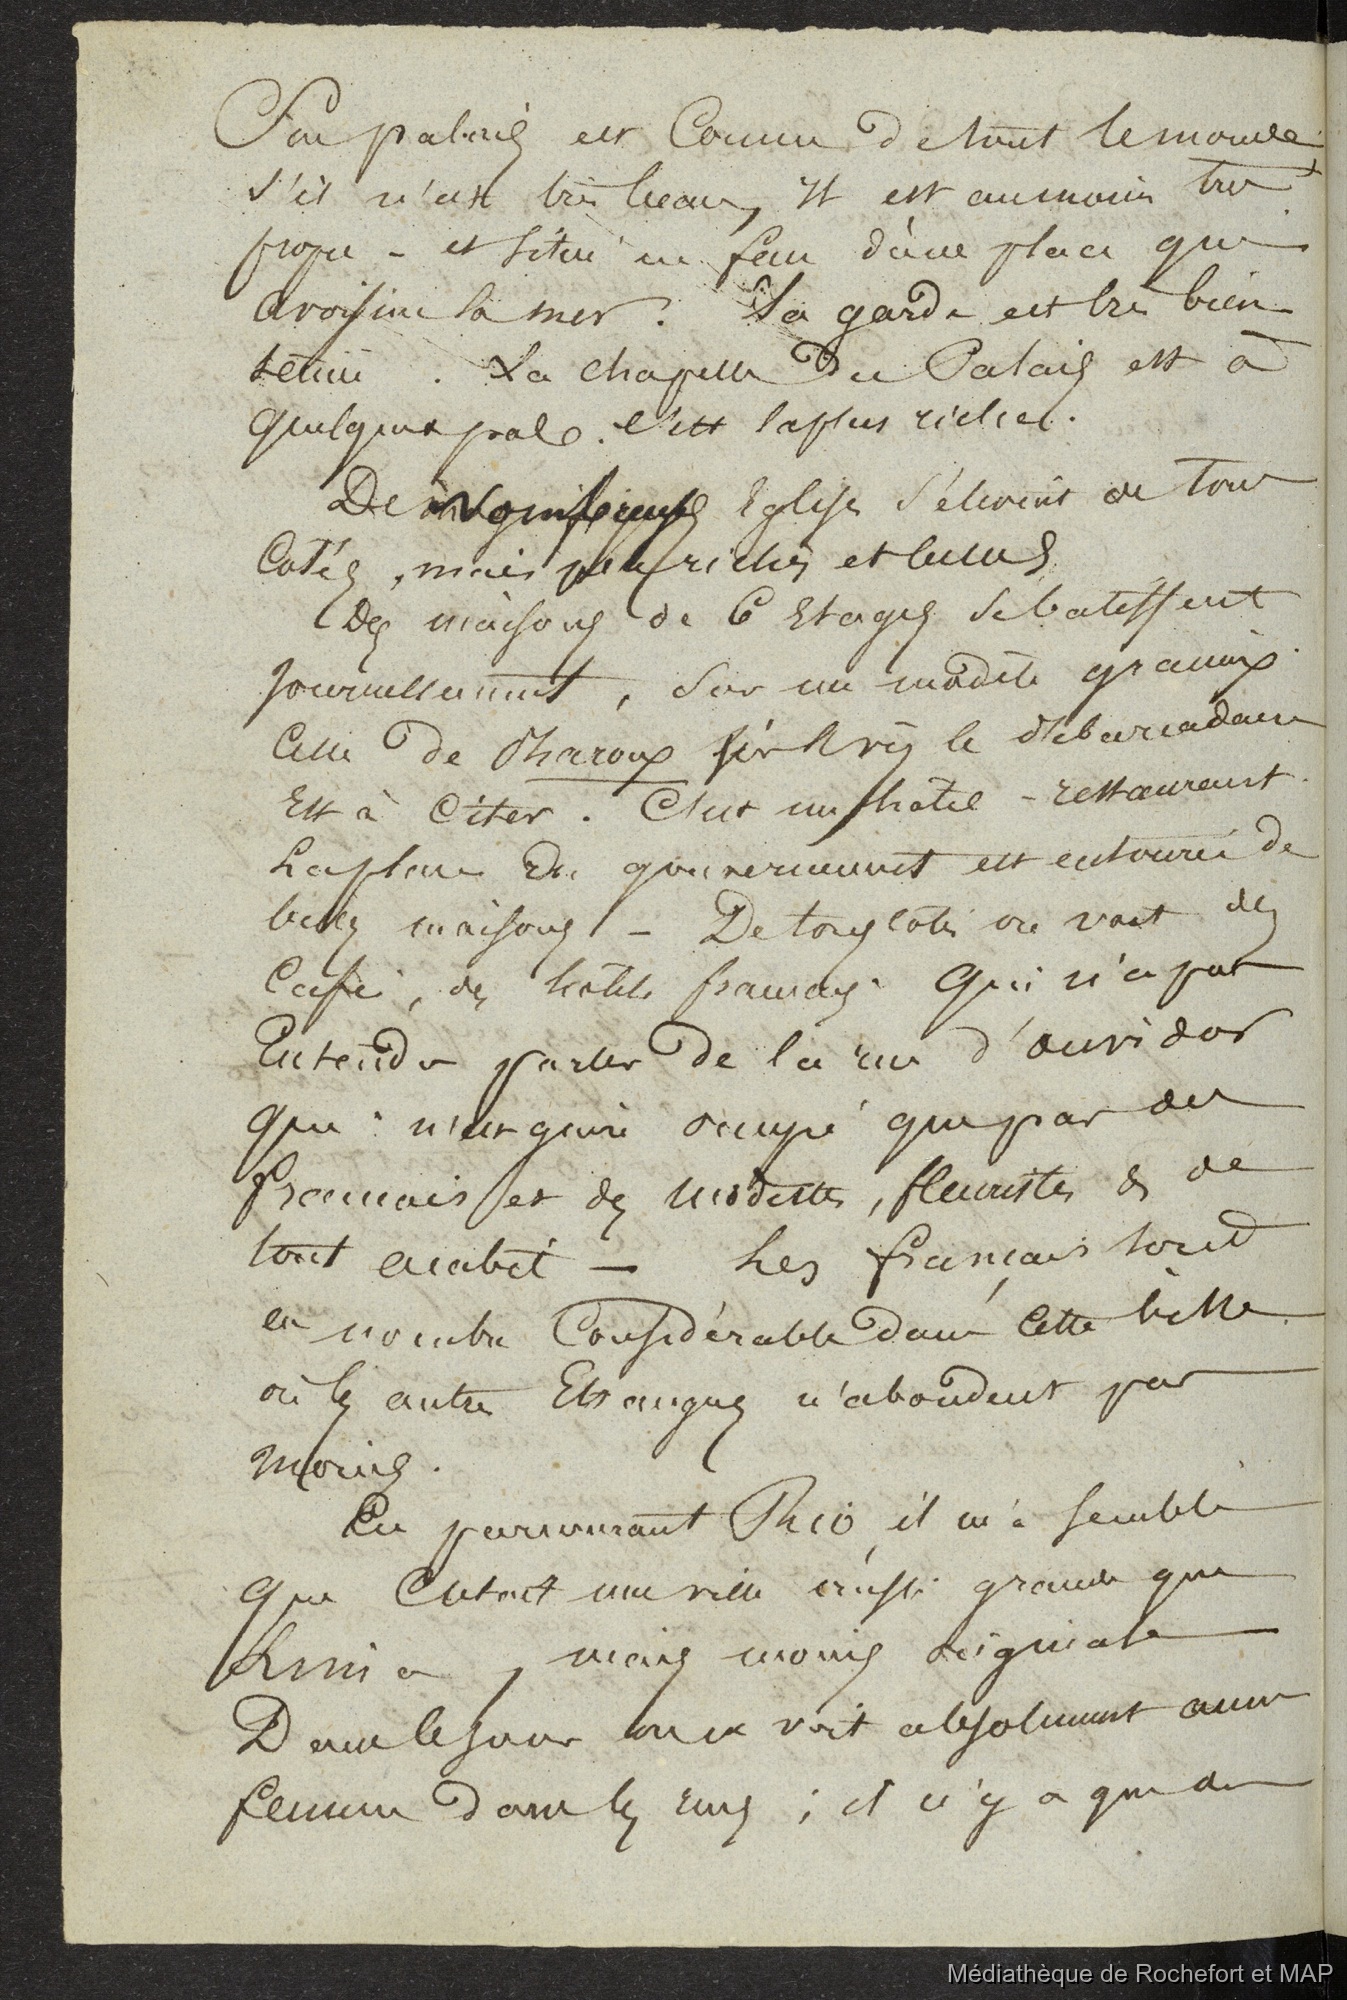 Son palais est Connu de tout le monde
s'il n'est très beau, il est au moins très
propre - et situé en face d'une place qui
avoisine la mer. Sa garde est très bien
tenue. La chapelle du Palais est à
quelques pas. C'est la plus riche.
De Eglises s'élèvent de tous
Cotés, mais peu riches et belles
Des maisons de 6 Etages se batissent
journellement, sur un modèle
Celle de Pharoux vis à vis le débarcadaire
Est à Citer. C'est un hotel - restaurant.
La place du gouvernement est entourée de
belles maisons - De tous cotés on voit des
Cafés, des hotels français. Qui n'a pas
Entendu parler de la rue d'ouvidor
qui n'est guère occupé que par des
français et des modistes, fleuristes & de
tout acabit - Les français sont
en nombre Considérable dans cette ville
où les autres Etrangers n'abondent pas
moins.
En parcourant Rio, il m'a semblé
que C'etait une ville aussi grande que
Lima, mais moins originale
Dans le jour on ne voit absolument aucune
femme dans les rues ; il n'y a que des
Médiathèque de Rochefort et MAP